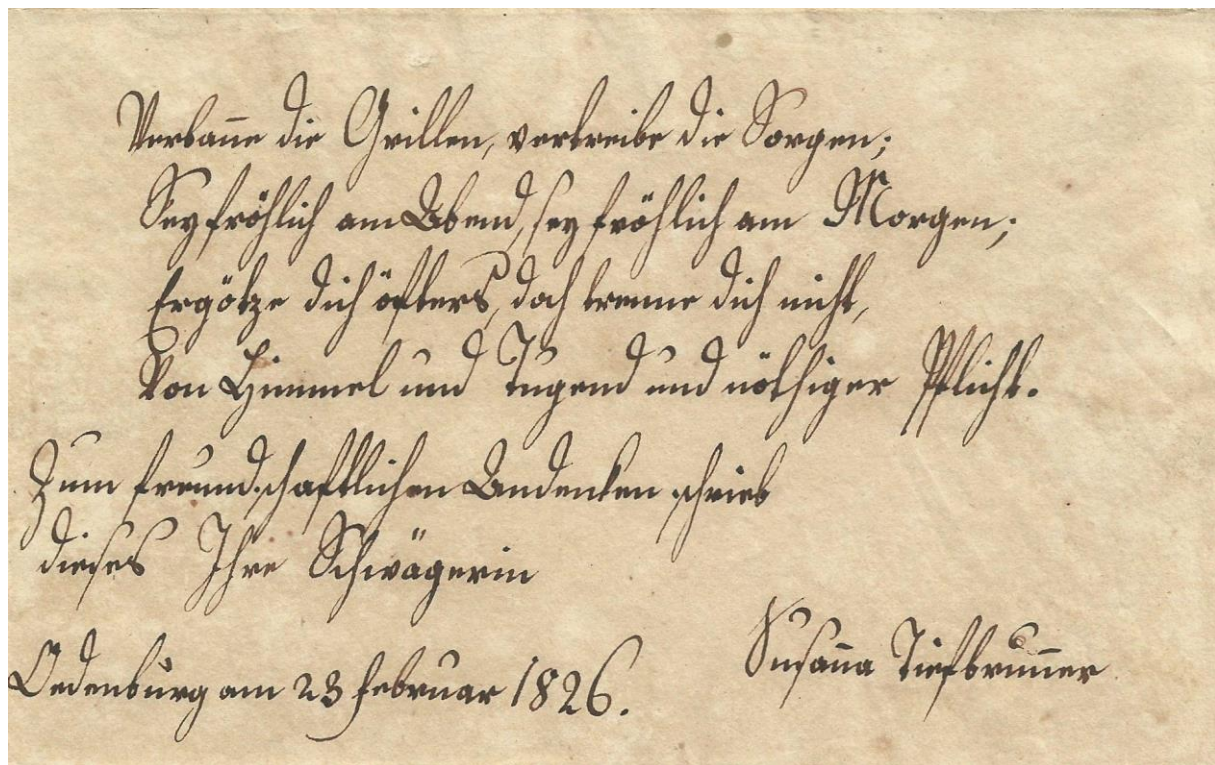 Verbañe die Grillen, vertreibe die Sorgen;
Sey fröhlich am Abend, sey fröhlich am Morgen;
Ergötze dich öfters, doch trenne dich nicht,
Von Himmel und Tugend und nöthiger Pflicht.
Zum freundschaftlichen Andenken schrieb
dieses Ihre Schwägerin
Susaña Tiefbruñer
Oedenburg am 23 Februar 1826.